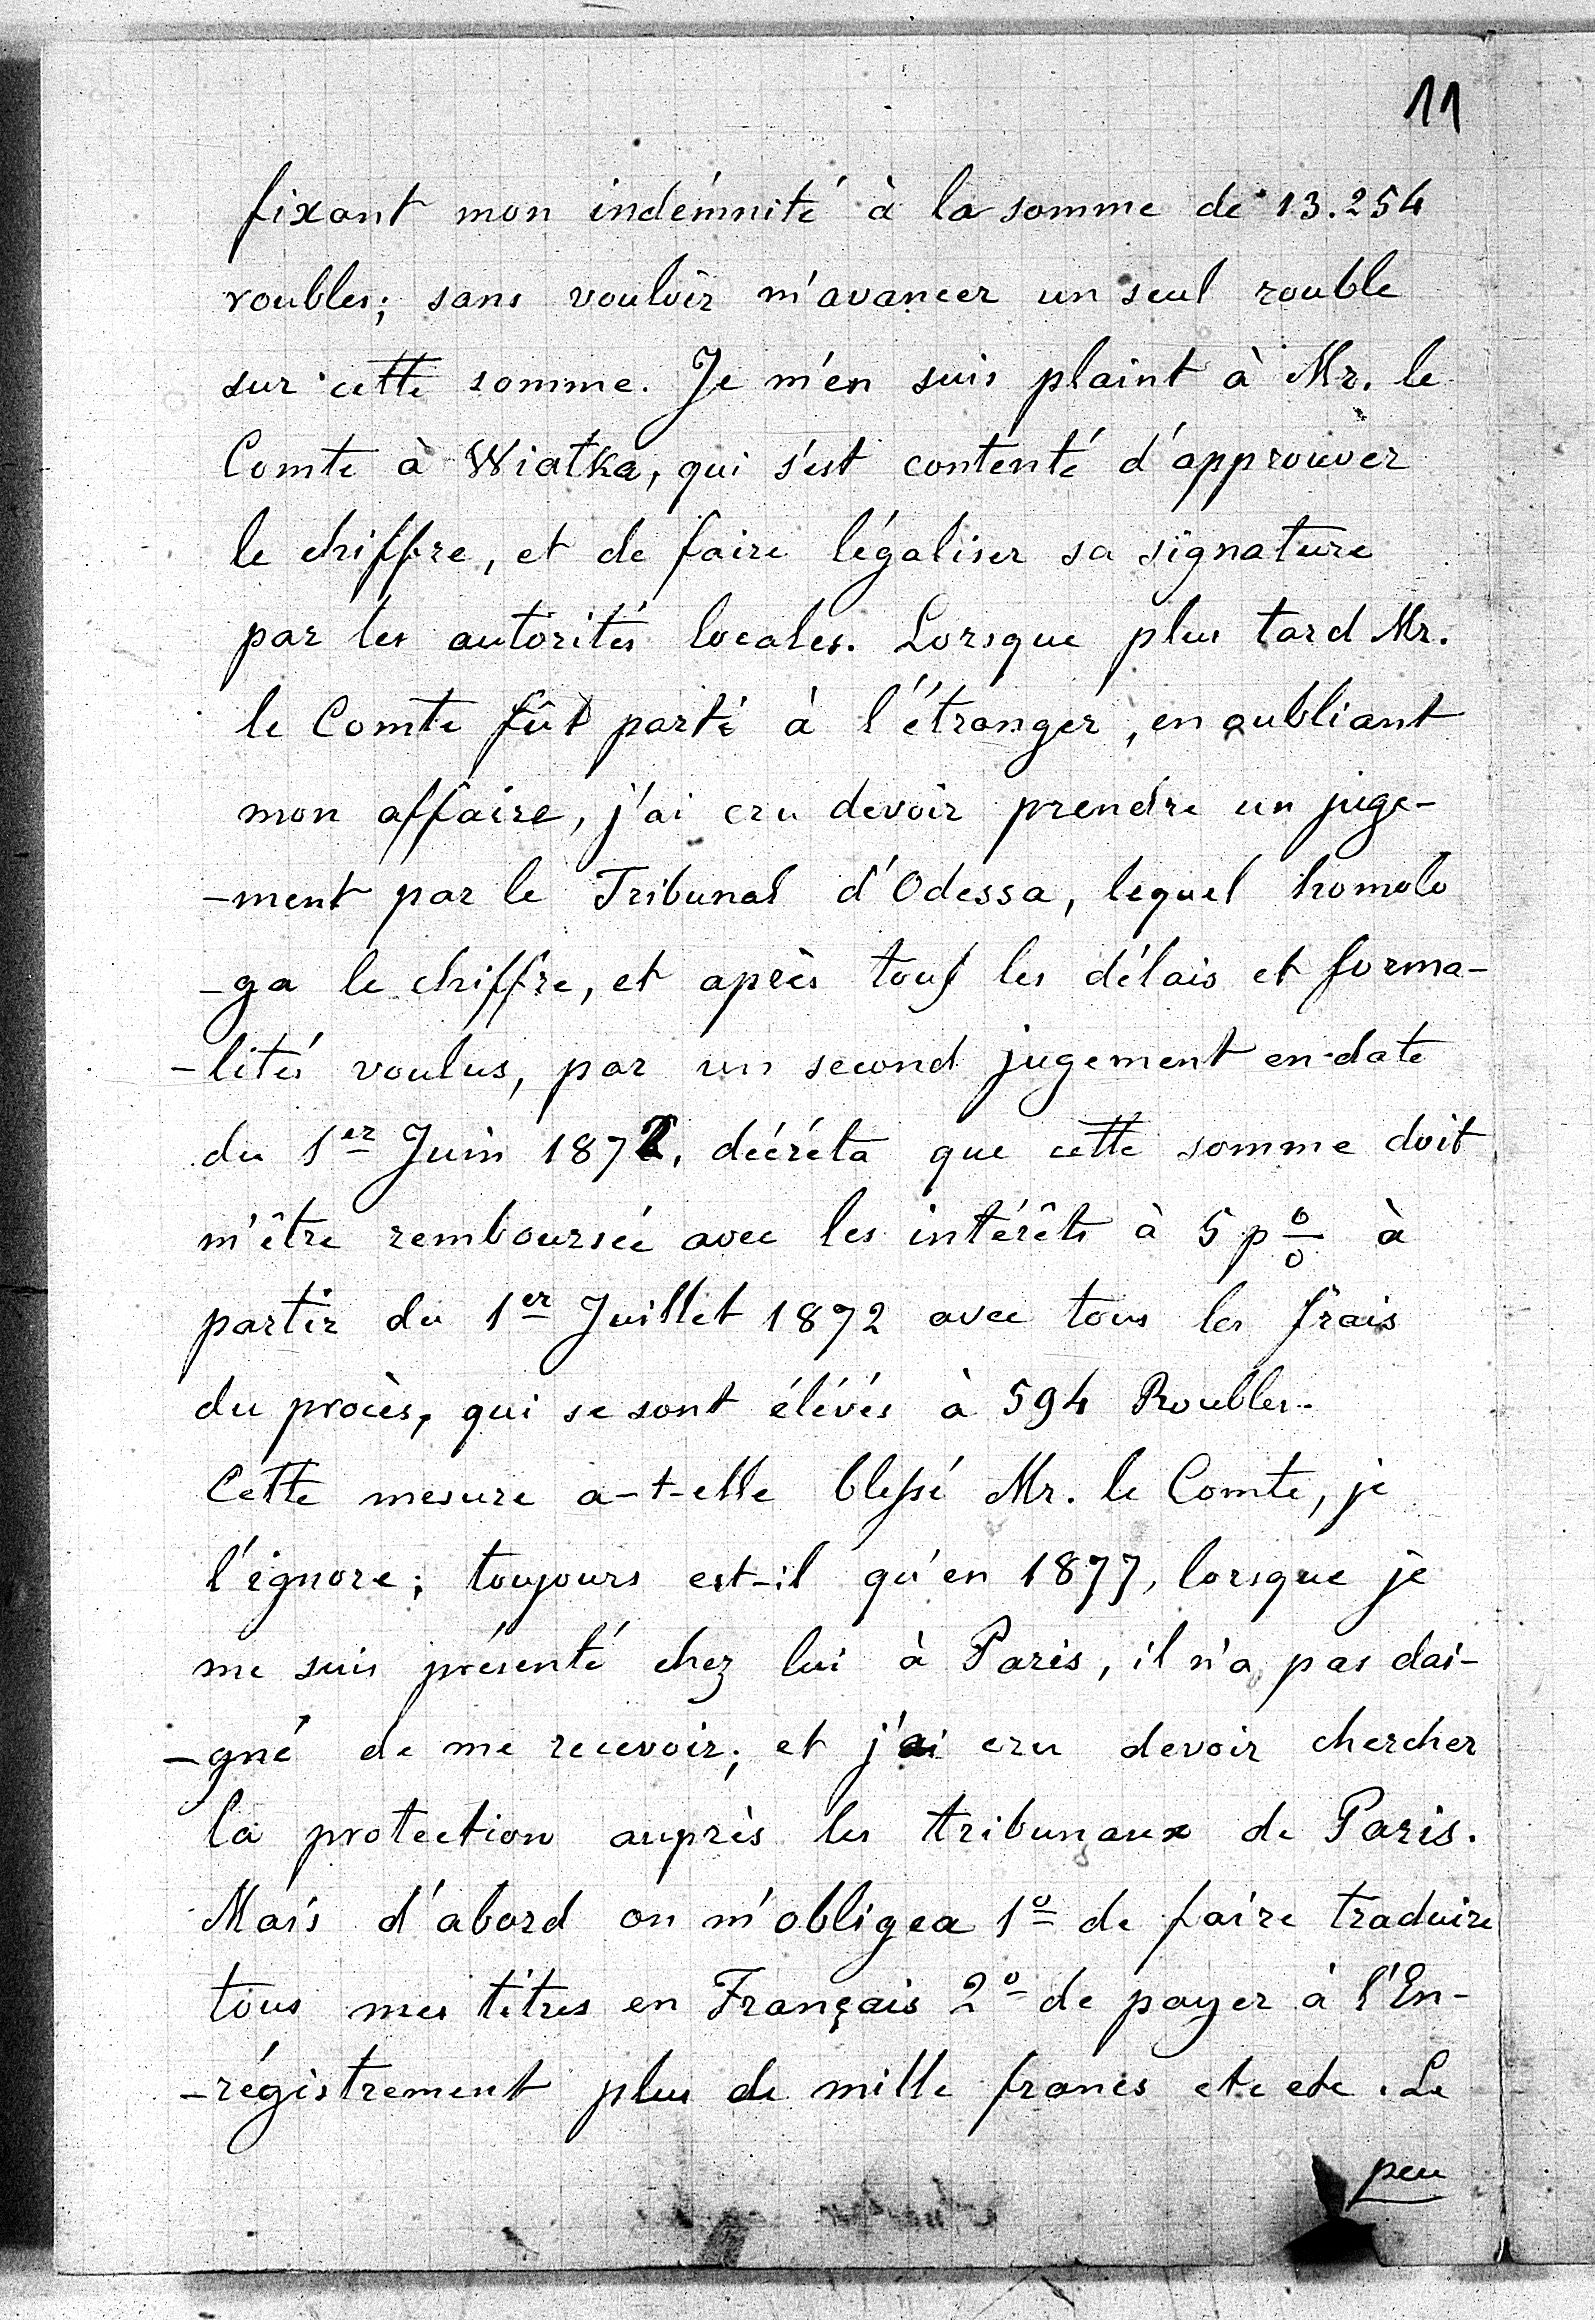 11
fixant mon indémnité à la somme de 13.254
roubles; sans vouloir m'avancer un seul rouble
sur cette somme. Je m'en suis plaint à Mr. le
Comte à Wiatka, qui s'est contenté d'approuver
le chiffre, et de faire légaliser sa signature
par les autorités locales. Lorsque plus tard Mr.
le Comte fût parti à l'étranger, en oubliant
mon affaire, j'ai cru devoir prendre un juge-
-ment par le Tribunal d'Odessa, lequel homolo
-ga le chiffre, et après tous les délais et forma-
-lités voulus, par un second jugement en date
du 1er Juin 1872, décréta que cette somme doit
m'être remboursée avec les intérêts à 5 p % à
partir du 1er Juillet 1872 avec tous les frais
du procès, qui se sont élévés à 594 Roubles.
Cette mesure a-t-elle blessé Mr. le Comte, je
l'ignore; toujours est-il qu'en 1877, lorsque je
me suis présenté chez lui à Paris, il n'a pas dai-
-gné de me recevoir; et j'ai cru devoir chercher
la protection auprès les tribunaux de Paris.
Mais d'abord on m'obligea 1º de faire traduire
tous mes titres en Français 2º de payer à l'En-
-régistrement plus de mille francs etc etc. Le
peu